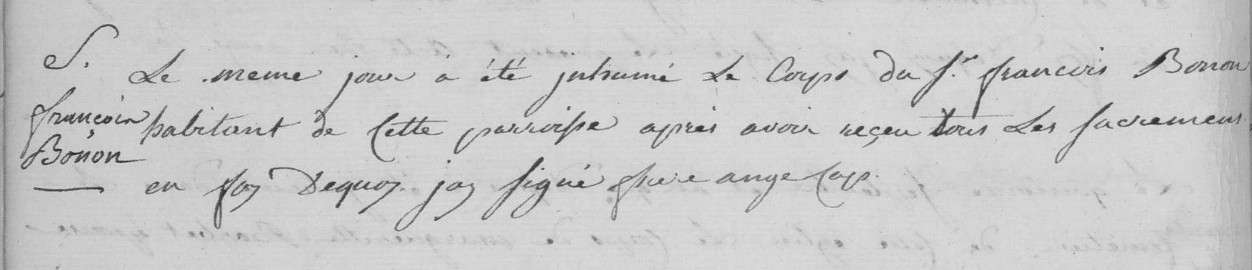 S.
Le meme jour a été inhumé Le Corps du Sr. francois Bonon
francois
habitant de Cette parroisse après avoir reçeu tous Les sacremens.
Bonon
en foy Dequoy jay signé frere ange Cap.